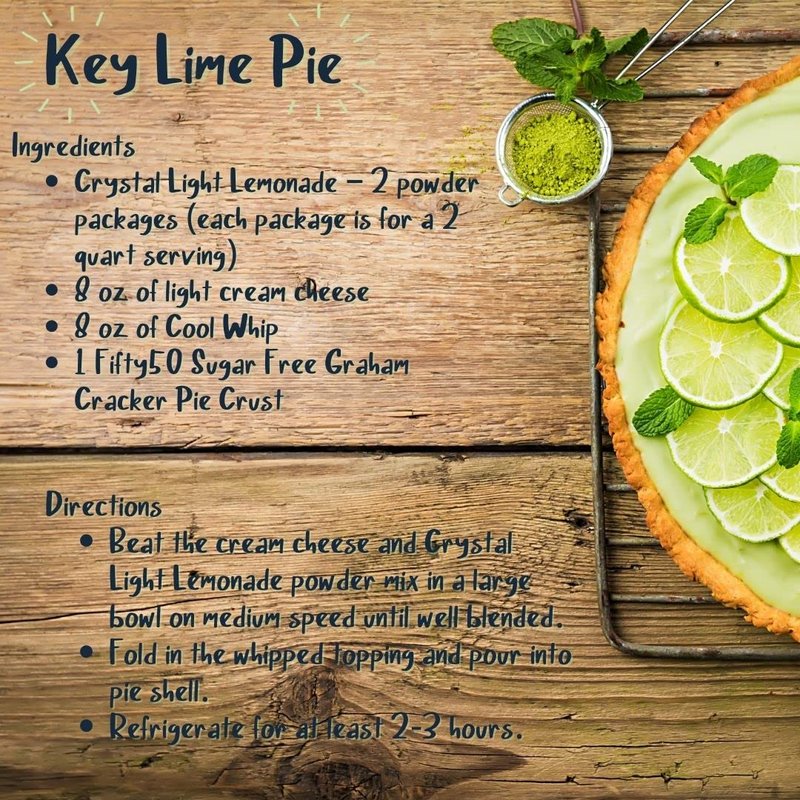 Key Lime Pie
Ingredients
• Crystal Light Lemonade – 2 powder
packages (each package is for a 2
quart serving)
• 8 oz of light cream cheese
• 8 oz of Cool Whip
• 1 Fifty50 Sugar Free Graham
Cracker Pie Crust
Directions
• Beat the cream cheese and Crystal
Light Lemonade powder mix in a large
bowl on medium speed until well blended.
• Fold in the whipped topping and pour into
pie shell.
• Refrigerate for at least 2-3 hours.